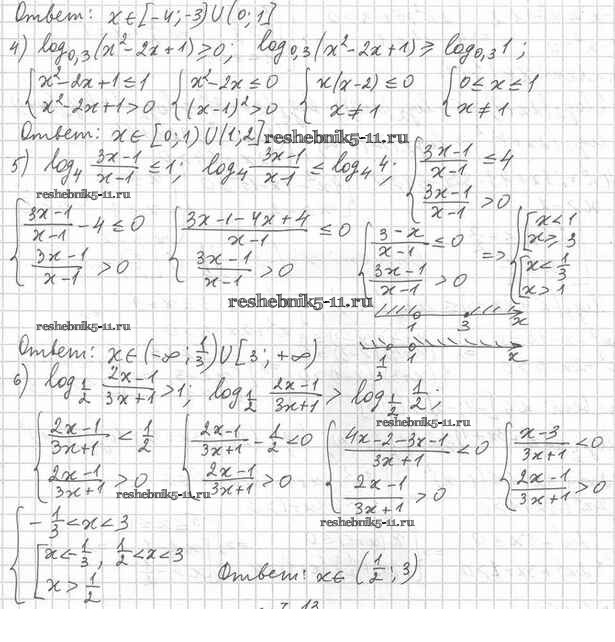 Ответ: x∈[-4;-3)∪(0;1]
4) log₀,₃(x²-2x+1)≥0; log₀,₃(x²-2x+1)≥log₀,₃1;
{x²-2x+1≤1 {x²-2x≤0 {x(x-2)≤0 {0≤x≤1
{x²-2x+1>0 {(x-1)²>0 {x≠1 {x≠1
Ответ: x∈[0;1)∪(1;2]
reshebnik5-11.ru
5) log₄ (3x-1)/(x-1) ≤1; log₄ (3x-1)/(x-1) ≤ log₄4; {(3x-1)/(x-1) ≤4
{(3x-1)/(x-1) >0
reshebnik5-11.ru
{(3x-1)/(x-1) -4≤0 {(3x-1-4x+4)/(x-1) ≤0 {(3-x)/(x-1) ≤0 => {[x<1
[x≥3
{(3x-1)/(x-1) >0 {(3x-1)/(x-1) >0 {(3x-1)/(x-1) >0 {[x<1/3
[x>1
reshebnik5-11.ru
1 3 x
reshebnik5-11.ru
1/3 1 x
Ответ: x∈(-∞;1/3)∪[3;+∞)
6) log₁/₂ (2x-1)/(3x+1) >1; log₁/₂ (2x-1)/(3x+1) > log₁/₂ 1/2;
reshebnik5-11.ru
{(2x-1)/(3x+1) <1/2 {(2x-1)/(3x+1) -1/2<0 {(4x-2-3x-1)/(3x+1) <0 {(x-3)/(3x+1) <0
{(2x-1)/(3x+1) >0 {(2x-1)/(3x+1) >0 {(2x-1)/(3x+1) >0 {(2x-1)/(3x+1) >0
reshebnik5-11.ru
reshebnik5-11.ru
{-1/3<x<3
{[x<-1/3, 1/2<x<3
[x>1/2
Ответ: x∈(1/2;3)